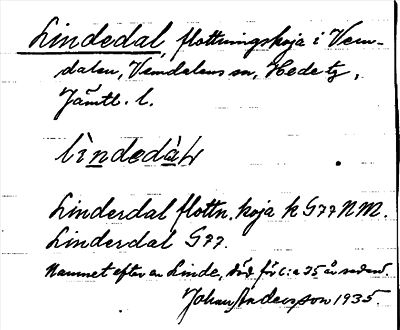 Lindedal, flottningskoja i Vem-
dalen, Vemdalens sn, Hede tg,
Jämtl. l.
lìndedàɫ
Linderdal flottn. koja k G77 NM.
Linderdal G77.
Namnet efter en Linde, död för c:a 75 år sedan.
Johan Andersson 1935.